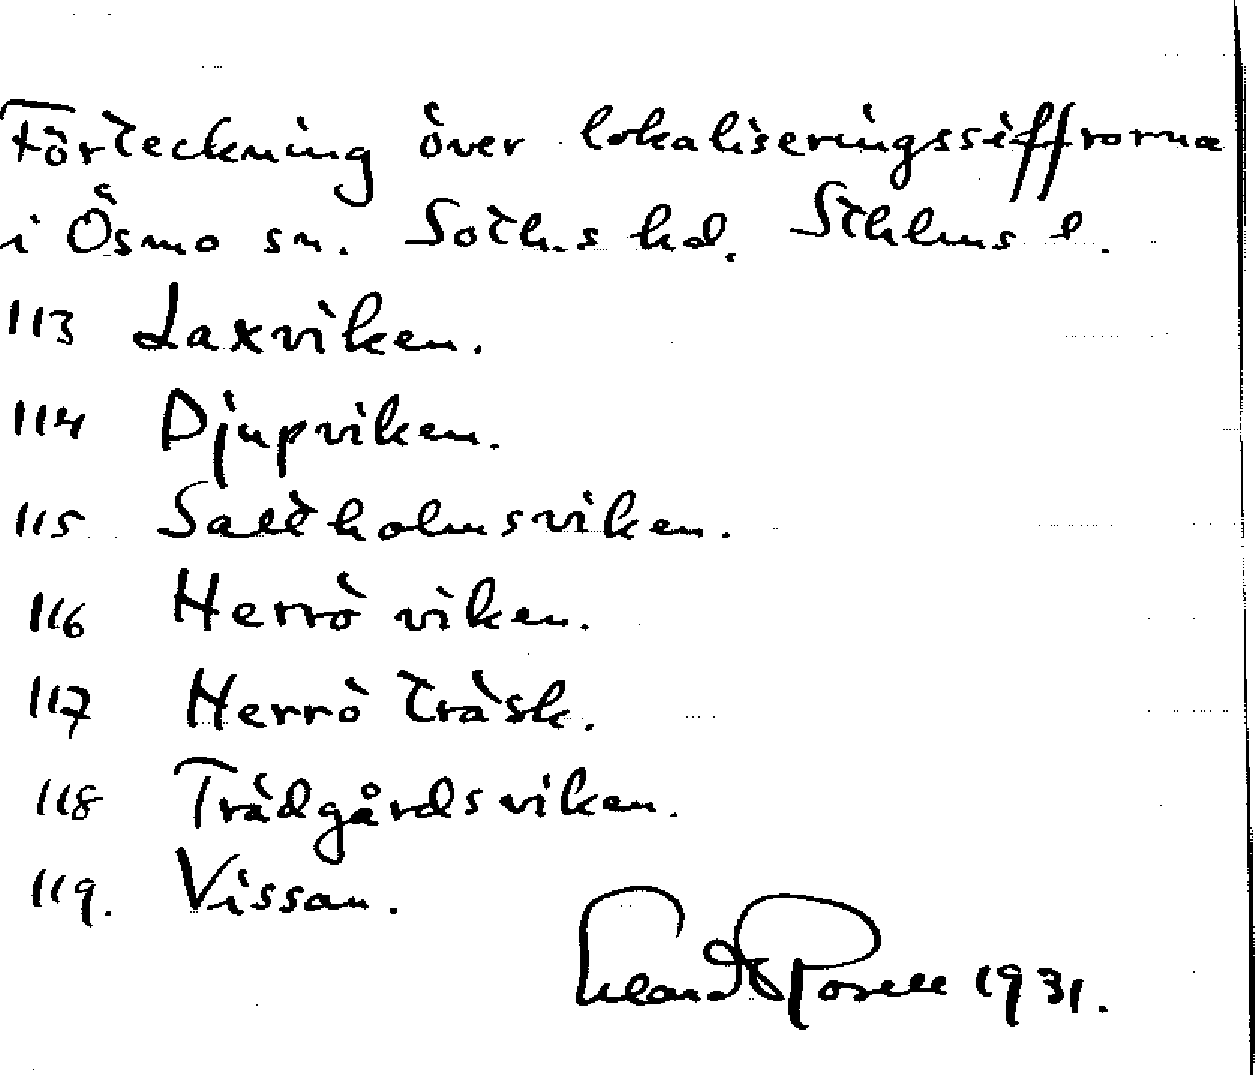 Förteckning över lokaliseringssiffrorna
i Ösmo sn. Soth.s hd. Sthlms l.
113 Laxviken.
114 Djupviken.
115 Saltholmsviken.
116 Herrö viken.
117 Herrö träsk.
118 Trädgårdsviken.
119. Vissan.
Rosell 1931.